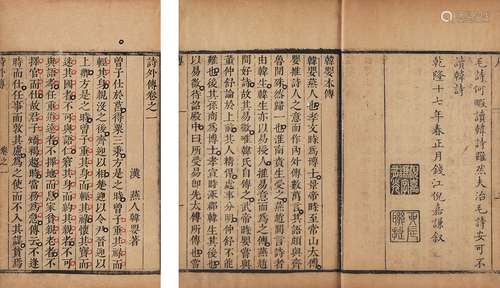 毛詩何暇讀韓詩
讀韓詩
乾隆十七年春正月錢江倪嘉謙叙
韓嬰本傳
韓嬰燕人也孝文時爲博士景帝時至常山太傅
嬰推詩人之意而作內外傳數萬言其語頗與齊
魯間殊然歸一也淮南賁生受之燕趙間言詩者
由韓生韓生亦以易授人推易意而爲之傳燕趙
間好詩故其易微唯韓氏自傳之武帝時嬰嘗與
董仲舒論於上前其人精悍處事分明仲舒不能
難也後其孫商爲博士孝宣時涿郡韓生其後也
以易徵待詔殿中曰所受易即先太傅所傳也
詩外傳卷之一
漢 燕人韓嬰著
曾子仕於莒得粟三秉方是之時曾子重其祿而
輕其身親沒之後齊迎以相楚迎以令尹晉迎以
上卿方是之時曾子重其身而輕其祿懷其寶而
迷其國者不可與語仁窘其身而約其親者不可
與語孝任重道遠者不擇地而息家貧親老者不
擇官而仕故君子橋褐趨時當務爲急傳云不逢
時而仕任事而敦其慮爲之使而不入其謀貧焉
詩外傳 卷之一